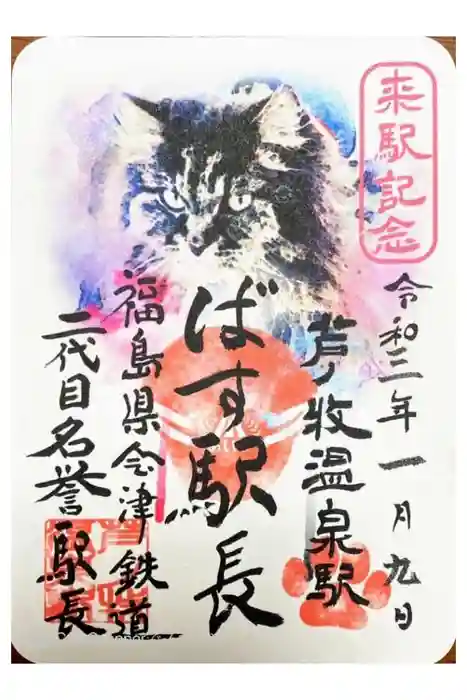 来駅記念
令和三年一月九日
芦ノ牧温泉駅
ばす駅長
福島県会津鉄道
二代目名誉駅長